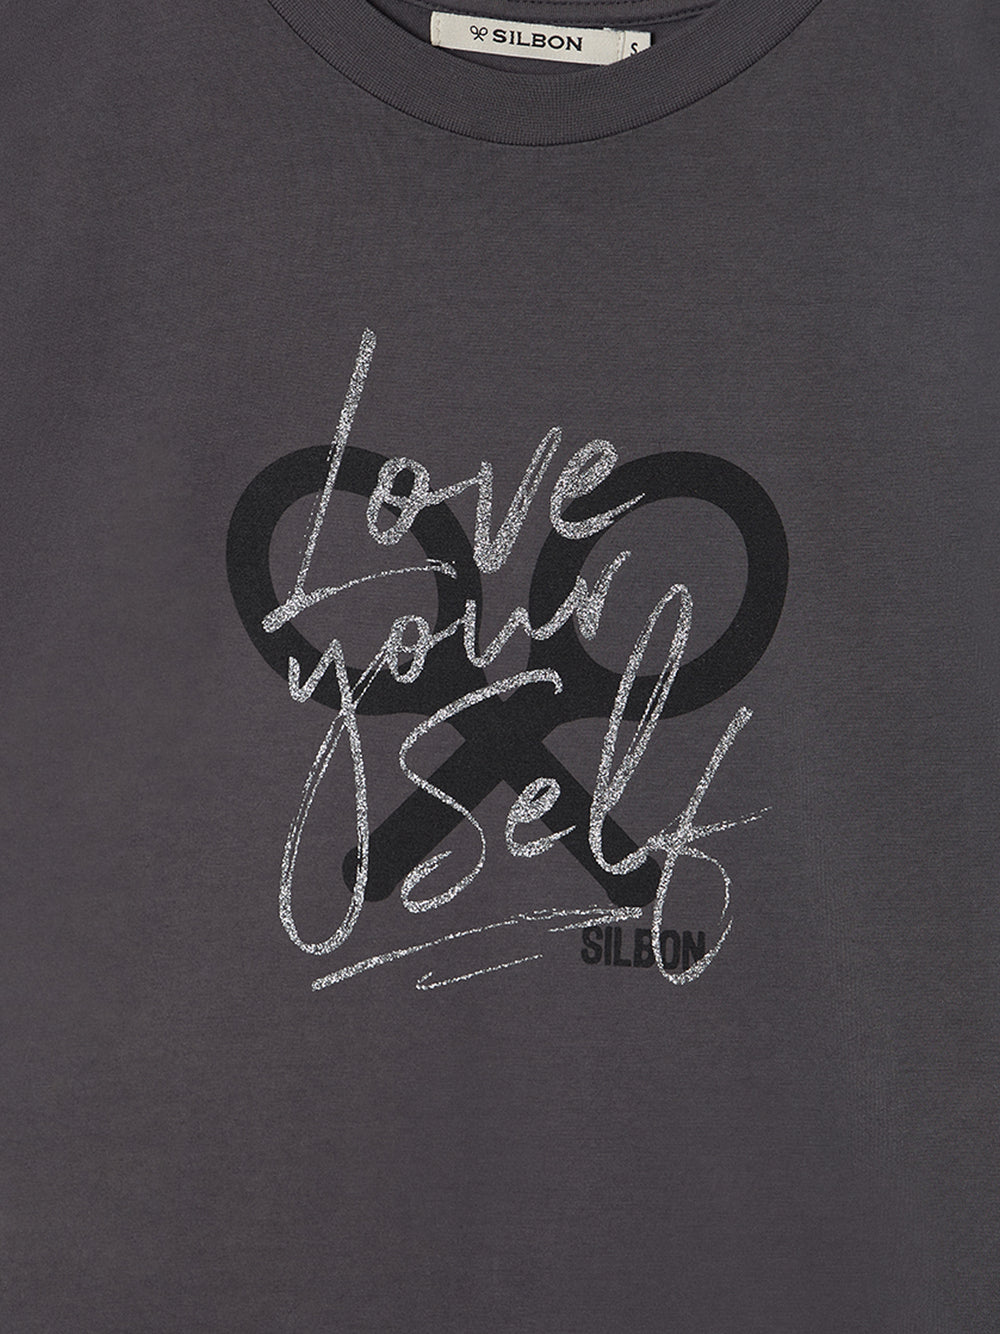 SILBON S
Love
your
Self
SILBON